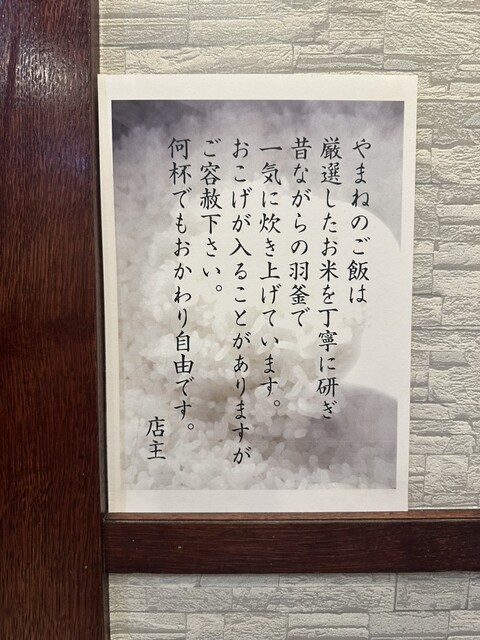 やまねのご飯は
厳選したお米を丁寧に研ぎ
昔ながらの羽釜で
一気に炊き上げています。
おこげが入ることがありますが
ご容赦下さい。
何杯でもおかわり自由です。
店主